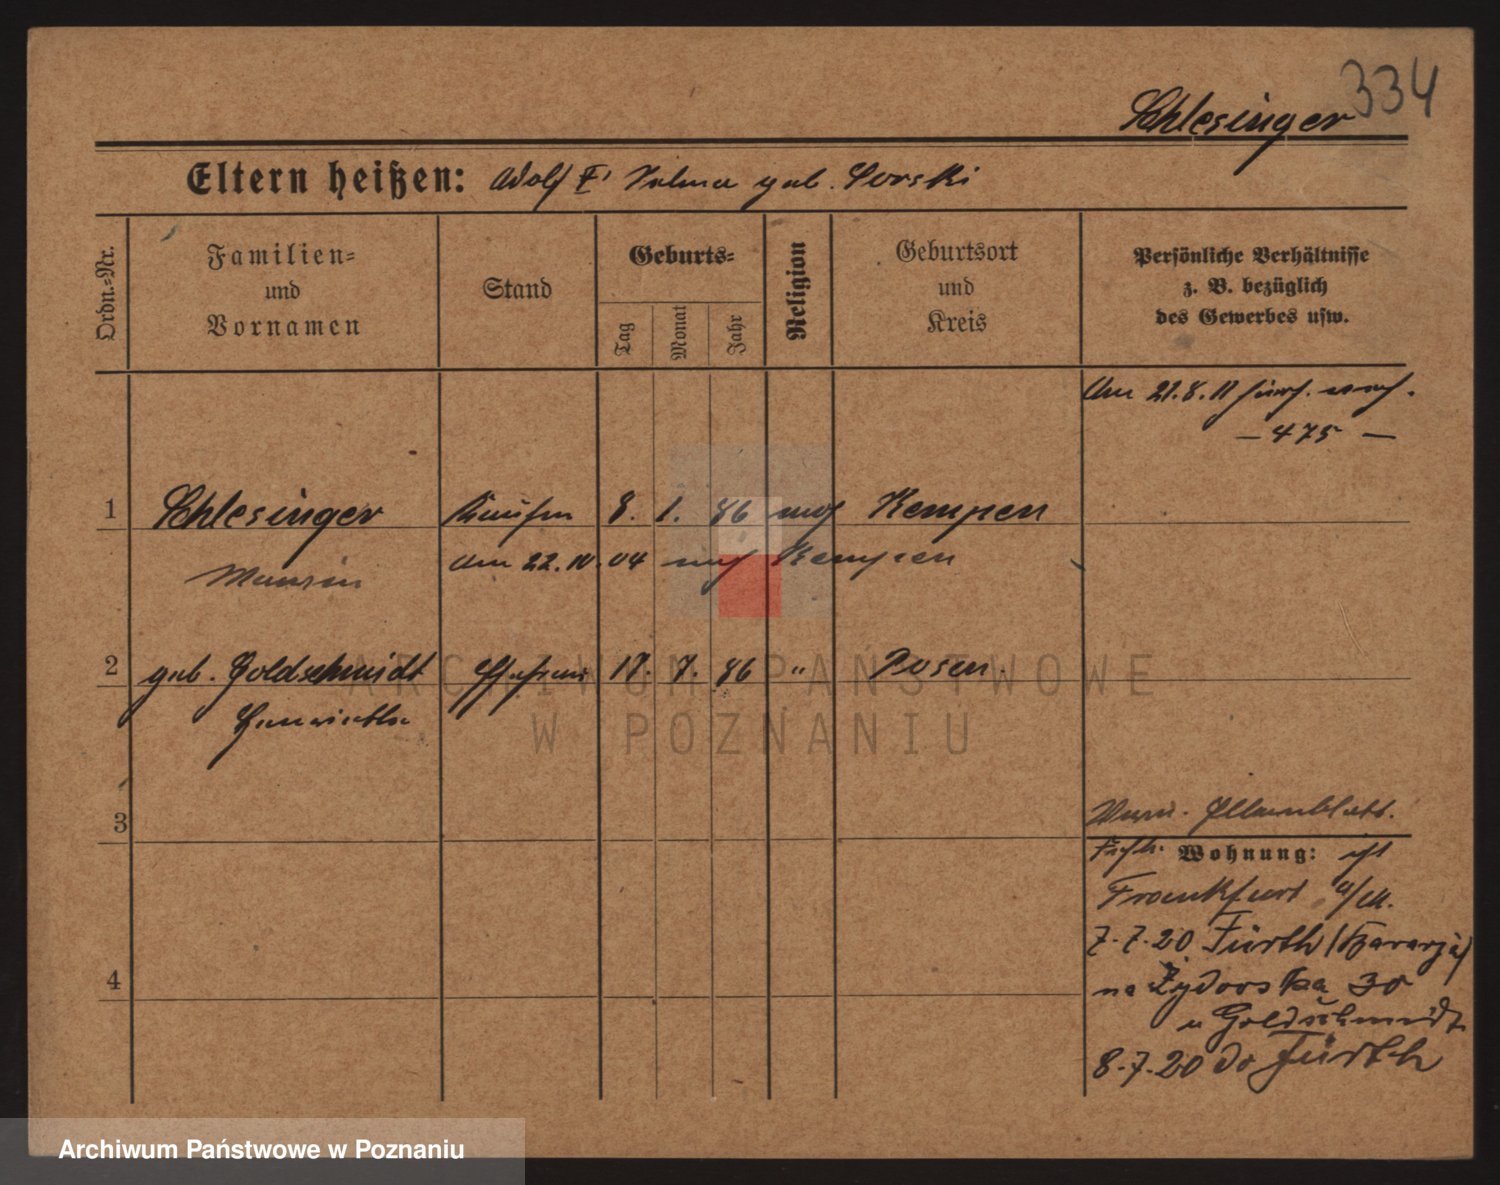 334
Schlesinger
Eltern heißen: Adolf geb. Sorski
Ordn.=Nr.
Familien=
und
Vornamen
Stand
Geburts=
Tag
Monat
Jahr
Religion
Geburtsort
und
Kreis
Persönliche Verhältnisse
z. B. bezüglich
des Gewerbes usw.
Am 21.8.11
— 475 —
1 Schlesinger Kaufm 8. 1. 86 mos Kempen
am 22.10.04 nach Kempen
2 geb. Goldschmidt Ehefrau 17. 7. 86 " Posen.
Henriette
3
Wohnung:
Frankfurt a/M.
4
7.7.20 Fürth (Bawarja)
na Żydowska 30
u Goldschmidt
8.7.20 do Fürth
ARCHIWUM PAŃSTWOWE
W POZNANIU
Archiwum Państwowe w Poznaniu